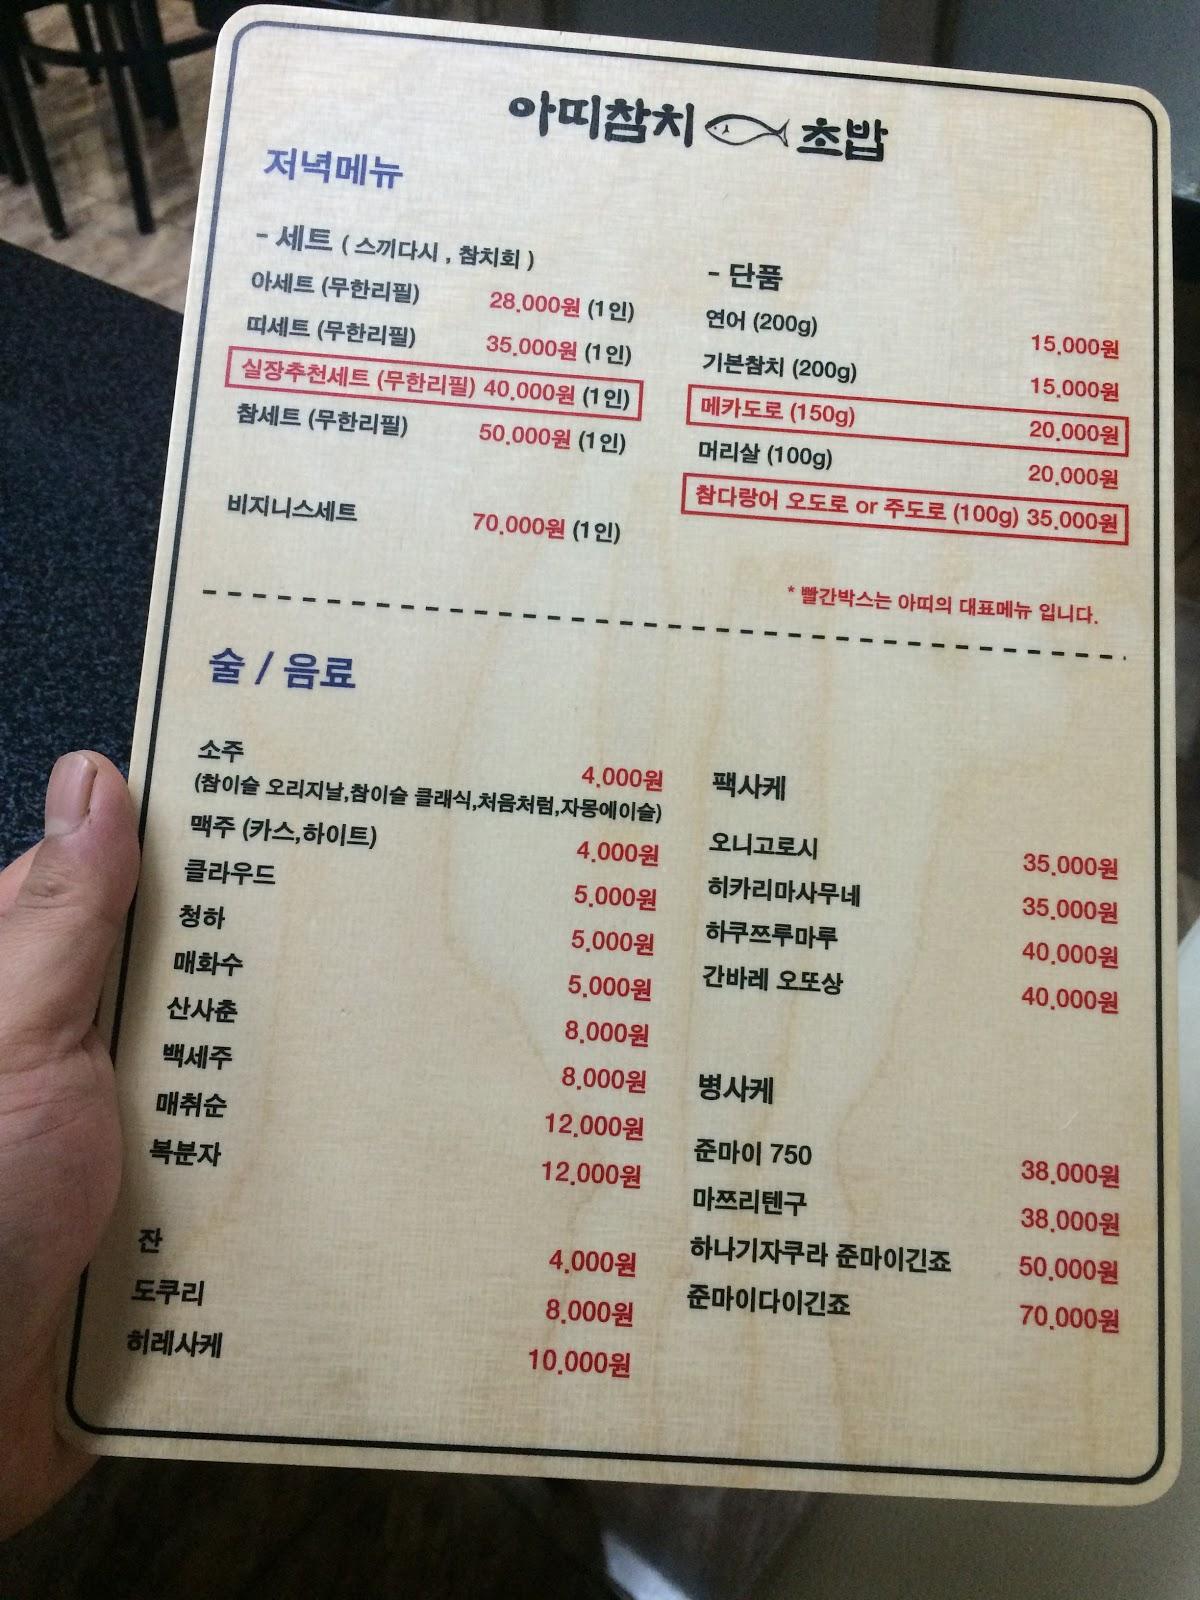 아띠참치 초밥
저녁메뉴
- 세트 ( 스끼다시 , 참치회 )
아세트 (무한리필) 28.000원 (1인)
띠세트 (무한리필) 35.000원 (1인)
실장추천세트 (무한리필) 40.000원 (1인)
참세트 (무한리필) 50.000원 (1인)
비지니스세트 70.000원 (1인)
- 단품
연어 (200g) 15.000원
기본참치 (200g) 15.000원
메카도로 (150g) 20.000원
머리살 (100g) 20.000원
참다랑어 오도로 or 주도로 (100g) 35.000원
* 빨간박스는 아띠의 대표메뉴 입니다.
술 / 음료
소주 4.000원
(참이슬 오리지날,참이슬 클래식,처음처럼,자몽에이슬)
맥주 (카스,하이트) 4.000원
클라우드 5.000원
청하 5.000원
매화수 5.000원
산사춘 8.000원
백세주 8.000원
매취순 12.000원
복분자 12.000원
잔 4.000원
도쿠리 8.000원
히레사케 10.000원
팩사케
오니고로시 35.000원
히카리마사무네 35.000원
하쿠쯔루마루 40.000원
간바레 오또상 40.000원
병사케
준마이 750 38.000원
마쯔리텐구 38.000원
하나기자쿠라 준마이긴죠 50.000원
준마이다이긴죠 70.000원